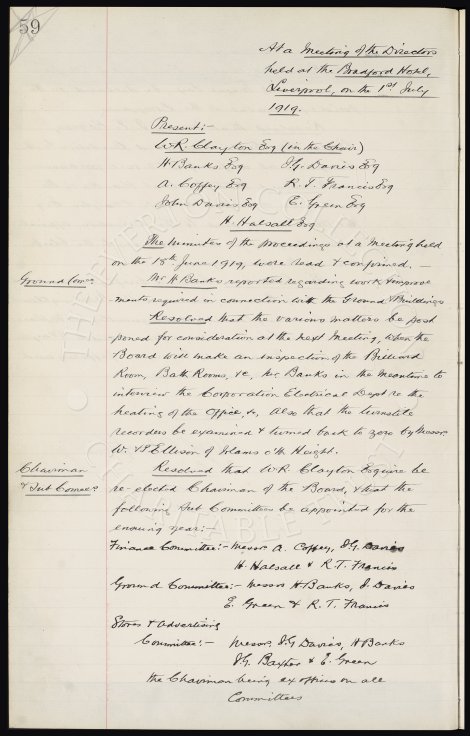 59
At a Meeting of the Directors
held at the Bradford Hotel,
Liverpool, on the 1st July
1919.
Present:-
W.R. Clayton Esq (in the Chair)
H Banks Esq J.G. Davies Esq
A. Coffey Esq R.T. Francis Esq
John Davies Esq E. Green Esq
H. Halsall Esq
The minutes of the proceedings at a Meeting held
on the 18th June 1919, were read & confirmed. -
Ground Comee. Mr H Banks reported regarding work & improve
ments required in connection with the Ground & Buildings
Resolved that the various matters be post
poned for consideration at the next Meeting, when the
Board will make an inspection of the Billiard
Room, Bath Rooms, &c, Mr Banks in the meantime to
interview the Corporation Electrical Dept re the
heating of the Office, &c, also that the turnstile
recorders be examined & turned back to zero by Messrs
W. & P Ellison of Irlams o'th Height.
Chairman Resolved that W.R. Clayton Esquire be
& Sub Comees re-elected Chairman of the Board, & that the
following Sub Committees be appointed for the
ensuing year:-
Finance Committee:- Messrs A. Coffey, J.G. Davies
H. Halsall & R.T. Francis
Ground Committee:- Messrs H Banks, J. Davies
E. Green & R.T. Francis
Stores & Advertising
Committee:- Messrs. J.G. Davies, H Banks
J.G. Baxter & E. Green
the Chairman being ex officio on all
Committees